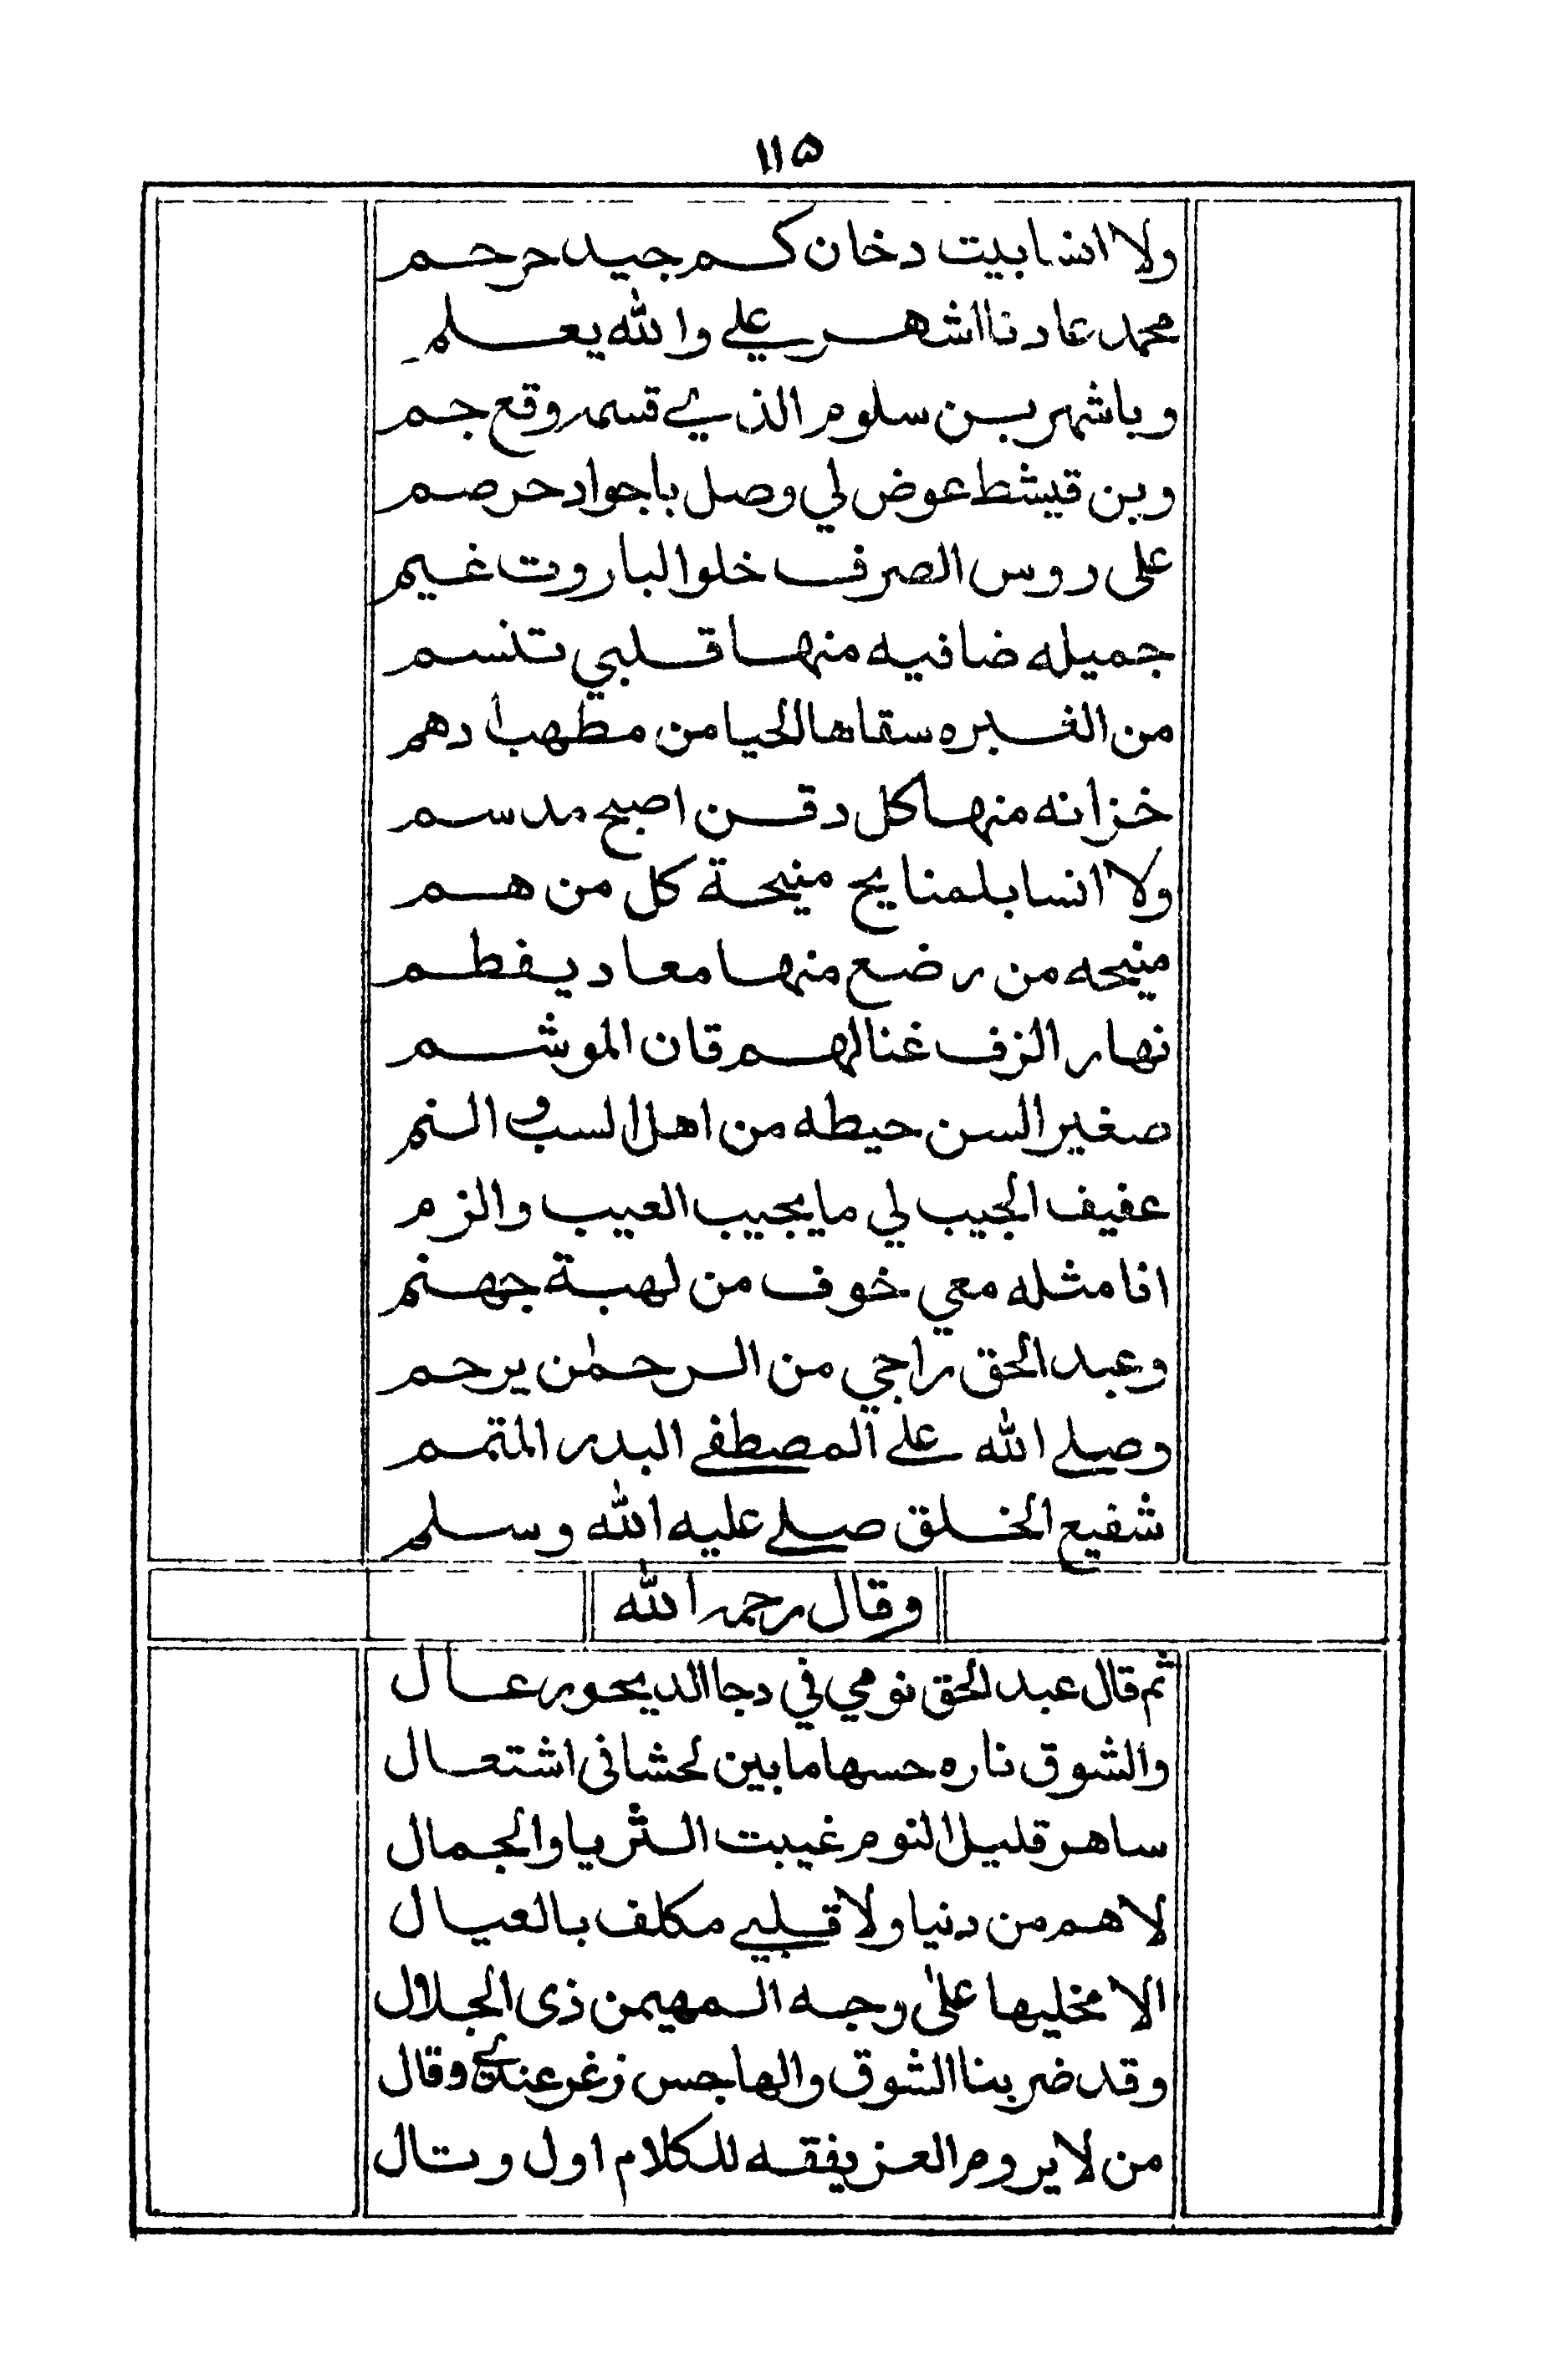 ١١٥
ولا انسا بيت دخان كم جيد حرحم
محمد عاد نا اشهر علي والله يعلم
وباشهر بن سلوم الذي قسمه وقع جم
وبن قيشط عوض لي وصل باجواد حرصم
على روس الصرف خلوا الباروت غيم
جميله ضافيه منها قلبي تنسم
من الغبره سقاها الحيا من مطهب ادهم
خزانه منها كل دقن اصبح مدسم
ولا انسا بلمنايح منيحة كل من هم
منيحه من رضع منها معاد يفطم
نهار الزف غنا لهم قان الموشم
صغير السن حيطه من اهل السب والنم
عفيف الجيب لي ما يجيب العيب والزم
انا مثله معي خوف من لهبة جهنم
وعبد الحق راجي من الرحمٰن يرحم
وصلى الله على المصطفى البدر المتمم
شفيع الخلق صلى عليه الله وسلم
وقال رحمه الله
ثم قال عبد الحق نومي في دجا الديحور عال
والشوق ناره حسها ما بين لحشا فى اشتعال
ساهر قليل النوم غيبت الثريا والجمال
لا هم من دنيا ولا قلبي مكلف بالعيال
الا مخليها على وجه المهيمن ذى الجلال
وقد ضربنا الشوق والهاجس زغر عندي وقال
من لا يروم العز يفقه للكلام اول وتال